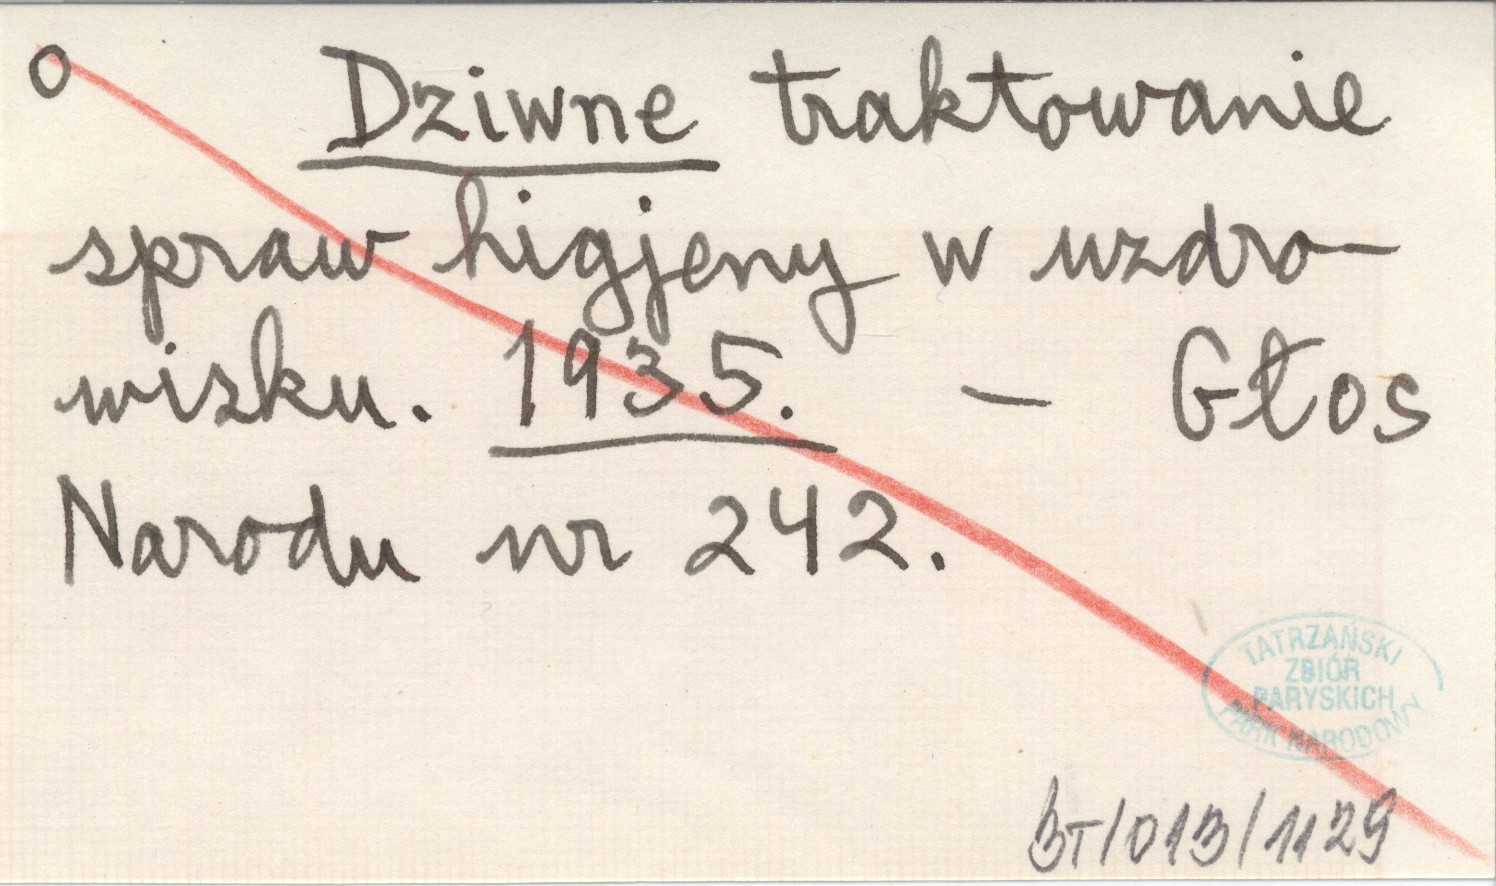 o Dziwne traktowanie
spraw higjeny w uzdro-
wisku. 1935. - Głos
Narodu nr 242.
TATRZAŃSKI
ZBIÓR
PARYSKICH
PARK NARODOWY
BT/013/1129